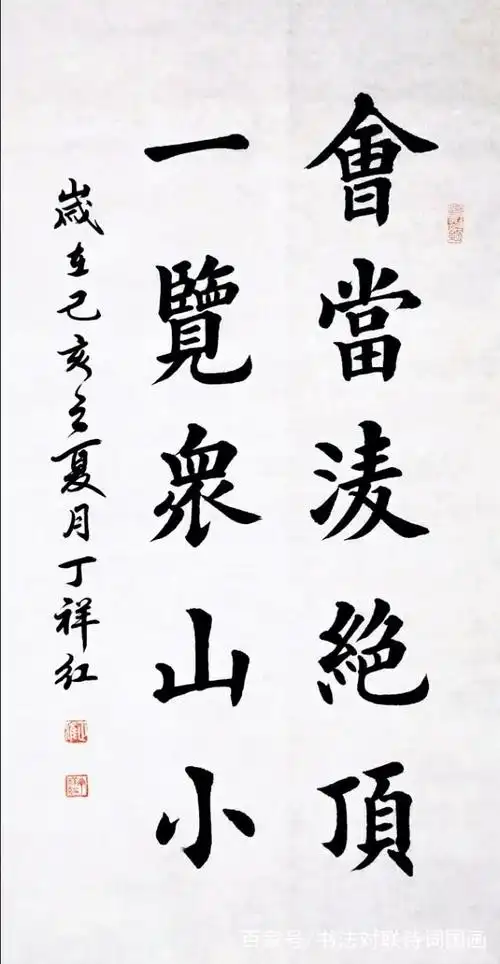 會當凌絕頂
一覽眾山小
歲在己亥之夏月丁祥紅
百家号/书法对联诗词国画